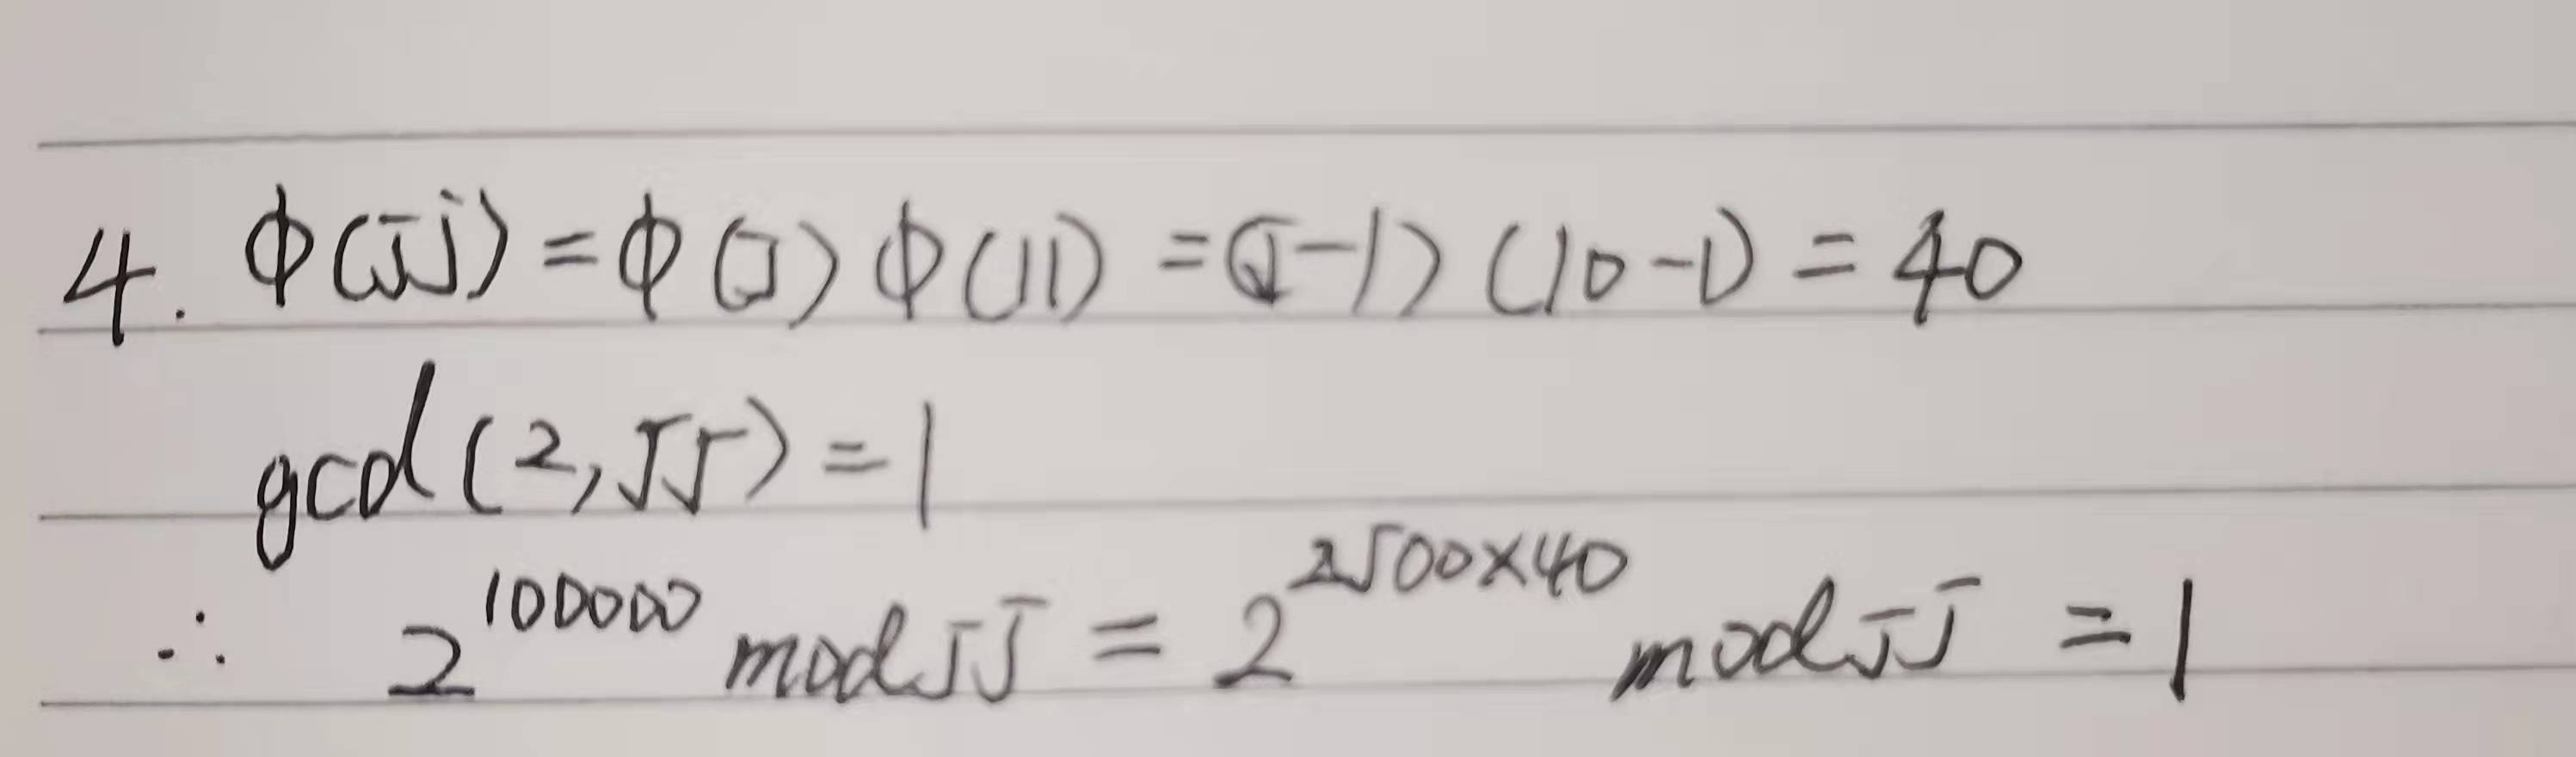 4. φ(55) = φ(5) φ(11) = (5-1) (10-1) = 40
gcd(2,55) = 1
∴ 2^100000 mod 55 = 2^2500×40 mod 55 = 1